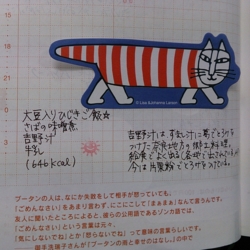 © Lisa Larson
大豆入りひじきご飯☆
さばの味噌煮
吉野汁
牛乳
(646kcal)
吉野汁は、すまし汁に葛でとろみを
つけた奈良地方の郷土料理。
給食でよく出る
今は片栗粉でとろみをつける。
ブータンの人は、なにか失敗をして相手が怒っていても、
「ごめんなさい」をあまり言わず、にこにこして「まぁまぁ」なんて言うんです。
友人に聞いたところによると、彼らの公用語であるゾンカ語では、
「ごめんなさい」という言葉は元々、
「気にしないでね」「怒らないでね」って意味の言葉らしいです。
御手洗瑞子さんが『ブータンの雨と幸せのはなし』の中で